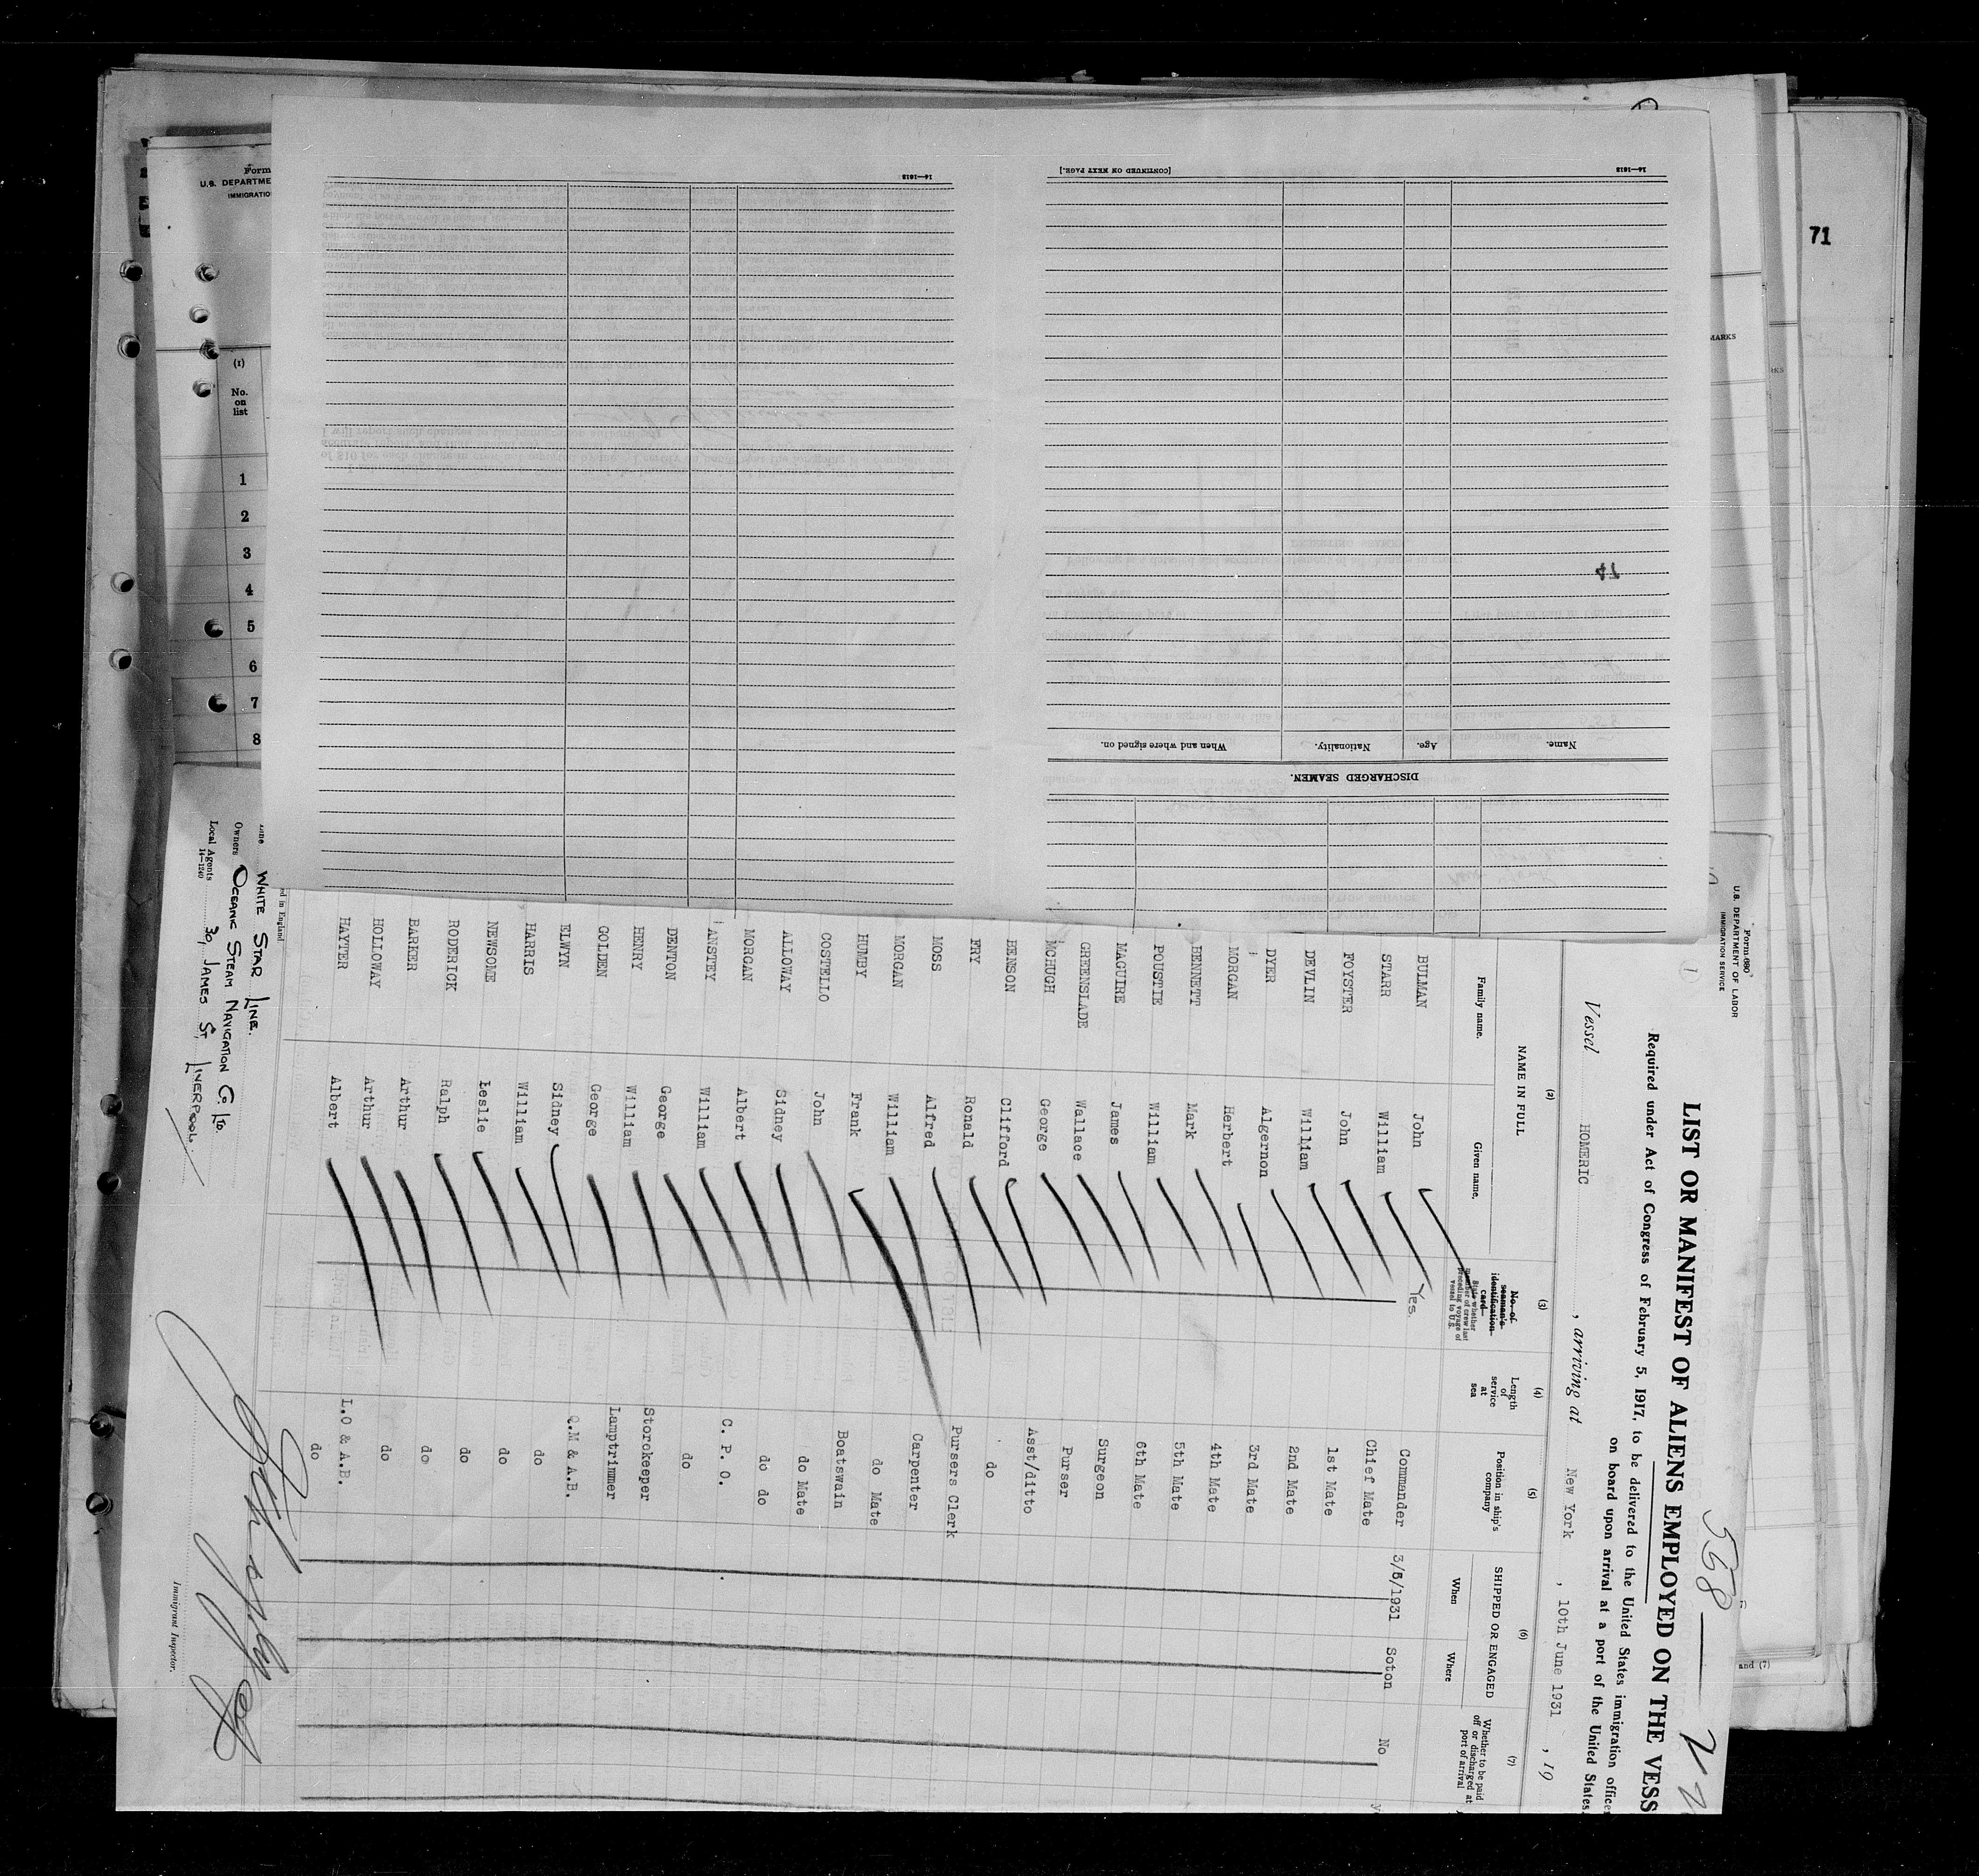 71
Form
U.S. DEPARTME
IMMIGRATIO
(1)
No.
on
list
1
2
3
4
5
6
7
8
MARKS
and (7)
14—1613
[CONTINUED ON NEXT PAGE.]
14—1613
DISCHARGED SEAMEN.
Name.
Age.
Nationality.
When and where signed on.
Form 680
U.S. DEPARTMENT OF LABOR
IMMIGRATION SERVICE
1
568
LIST OR MANIFEST OF ALIENS EMPLOYED ON THE VESS
Required under Act of Congress of February 5, 1917, to be delivered to the United States immigration office
on board upon arrival at a port of the United States
Vessel HOMERIC , arriving at New York , 10th June 1931 , 19
(2) (3) (4) (5) (6) (7)
NAME IN FULL
Family name. Given name.
No. of seaman's identification card
State whether member of crew last preceding voyage of vessel to U.S.
Length of service at sea
Position in ship's company
SHIPPED OR ENGAGED
When Where
Whether to be paid off or discharged at port of arrival
BULMAN John Yes. Commander 3/6/1931 Soton No
STARR William Chief Mate
FOYSTER John 1st Mate
DEVLIN William 2nd Mate
DYER Algernon 3rd Mate
MORGAN Herbert 4th Mate
BENNETT Mark 5th Mate
POUSTIE William 6th Mate
MAGUIRE James Surgeon
GREENSLADE Wallace Purser
MCHUGH George Asst/ditto
BENSON Clifford do
FRY Ronald Pursers Clerk
MOSS Alfred Carpenter
MORGAN William do Mate
HUMBY Frank Boatswain
COSTELLO John do Mate
ALLOWAY Sidney do do
MORGAN Albert C. P. O.
ANSTEY William do
DENTON George Storekeeper
HENRY William Lamptrimmer
GOLDEN George Q.M & A.B.
ELWYN Sidney do
HARRIS William do
NEWSOME Leslie do
RODERICK Ralph do
BARKER Arthur do
HOLLOWAY Arthur L.O & A.B.
HAYTER Albert do
ed in England
Line WHITE STAR LINE.
Owners OCEANIC STEAM NAVIGATION Co. LTD.
Local Agents 30, JAMES ST, LIVERPOOL.
14—1240
Immigrant Inspector.